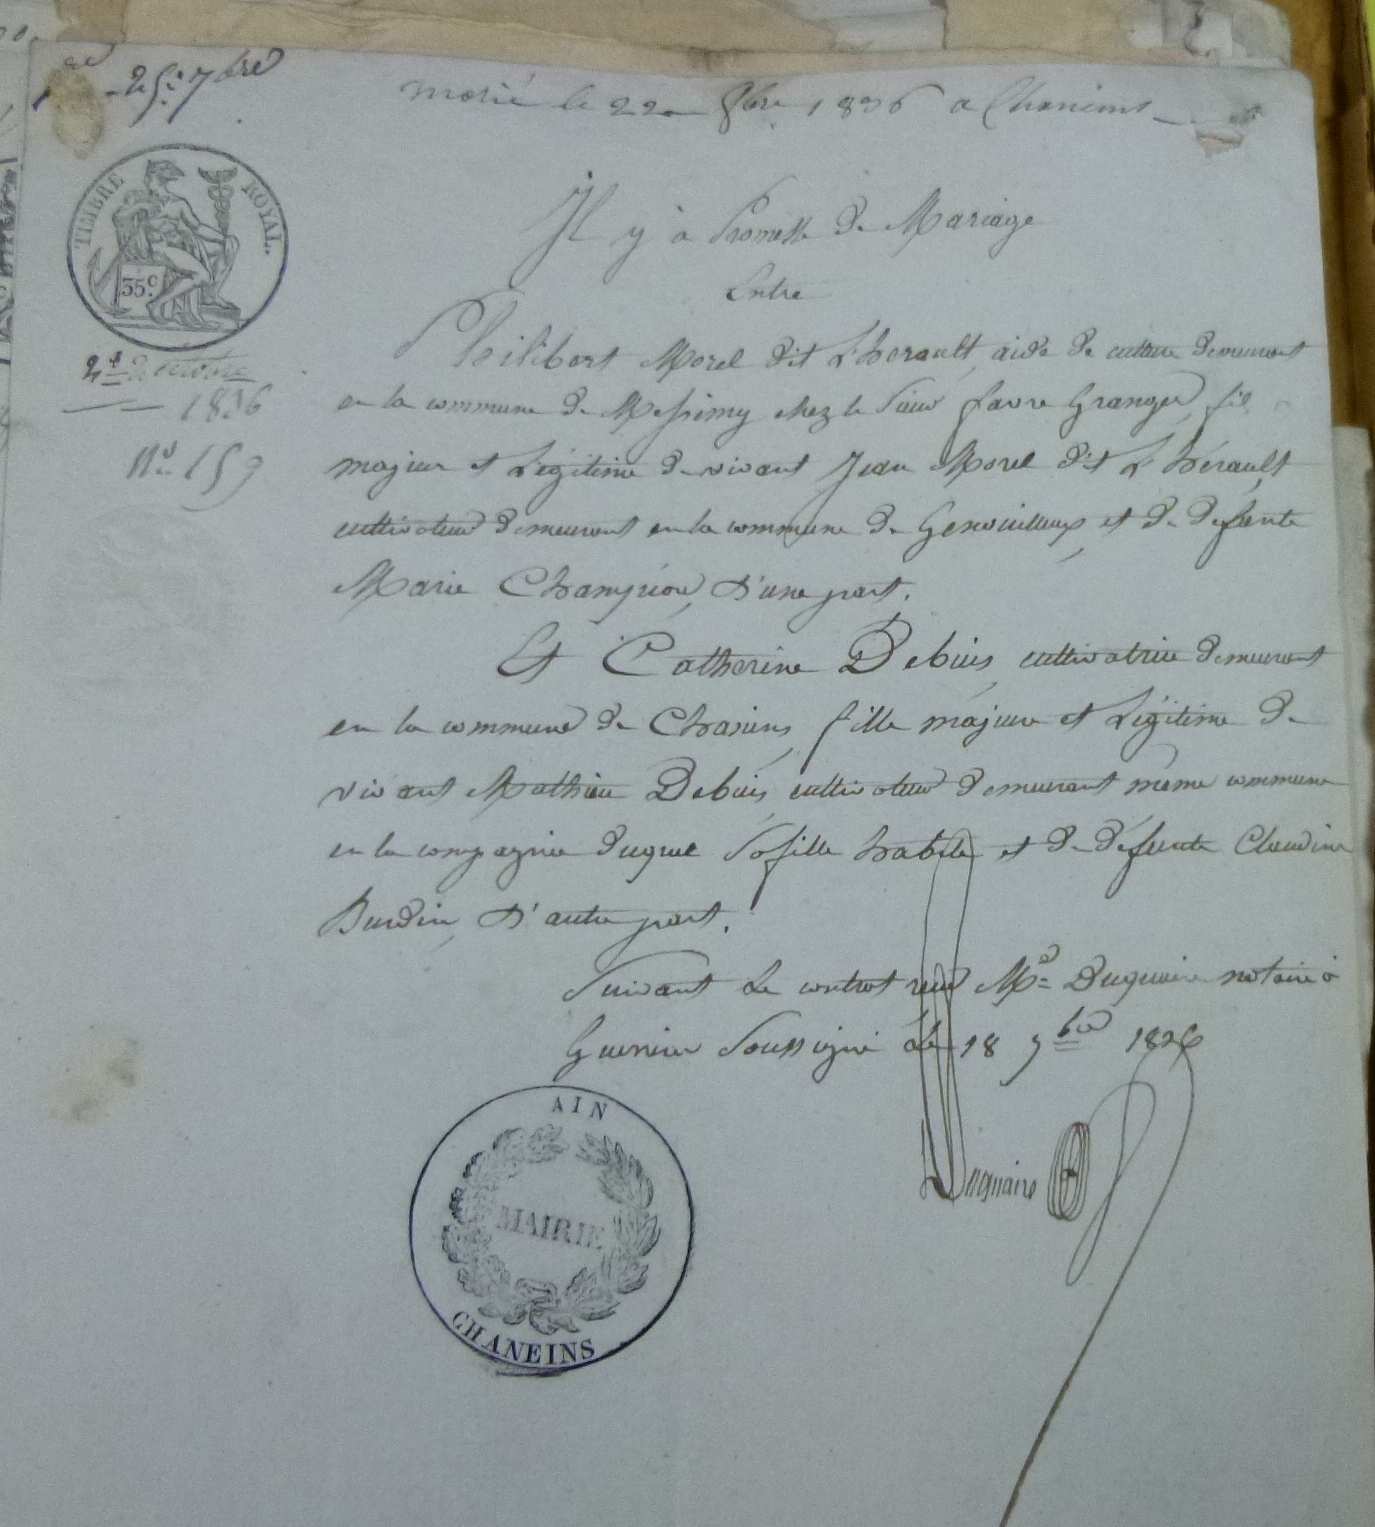 25 7bre
marié le 22 8bre 1836 a Chaneins
TIMBRE ROYAL.
35c.
Il y à Promesse de Mariage
Entre
2 octobre
1836
No 153
Philibert Morel dit L'herault, aide de culture demeurant
en la commune de Messimy chez le Sieur favre Granger, fils
majeur et Légitime de vivant Jean Morel dit L'hérault,
cultivateur demeurant en la commune de Genouilleux, et de défunte
Marie Champion, D'une part.
Et Catherine Debuis, cultivatrice demeurant
en la commune de Chaneins, fille majeure et Légitime de
vivant Mathieu Debuis, cultivateur demeurant même commune
en la compagnie duquel Sa fille habite et de défunte Claudine
Burdin, D'autre part.
Suivant Le contrat reçu Me Duquaire notaire à
Guerreins Soussigné Le 18 7bre 1836
Duquaire
AIN
MAIRIE
CHANEINS